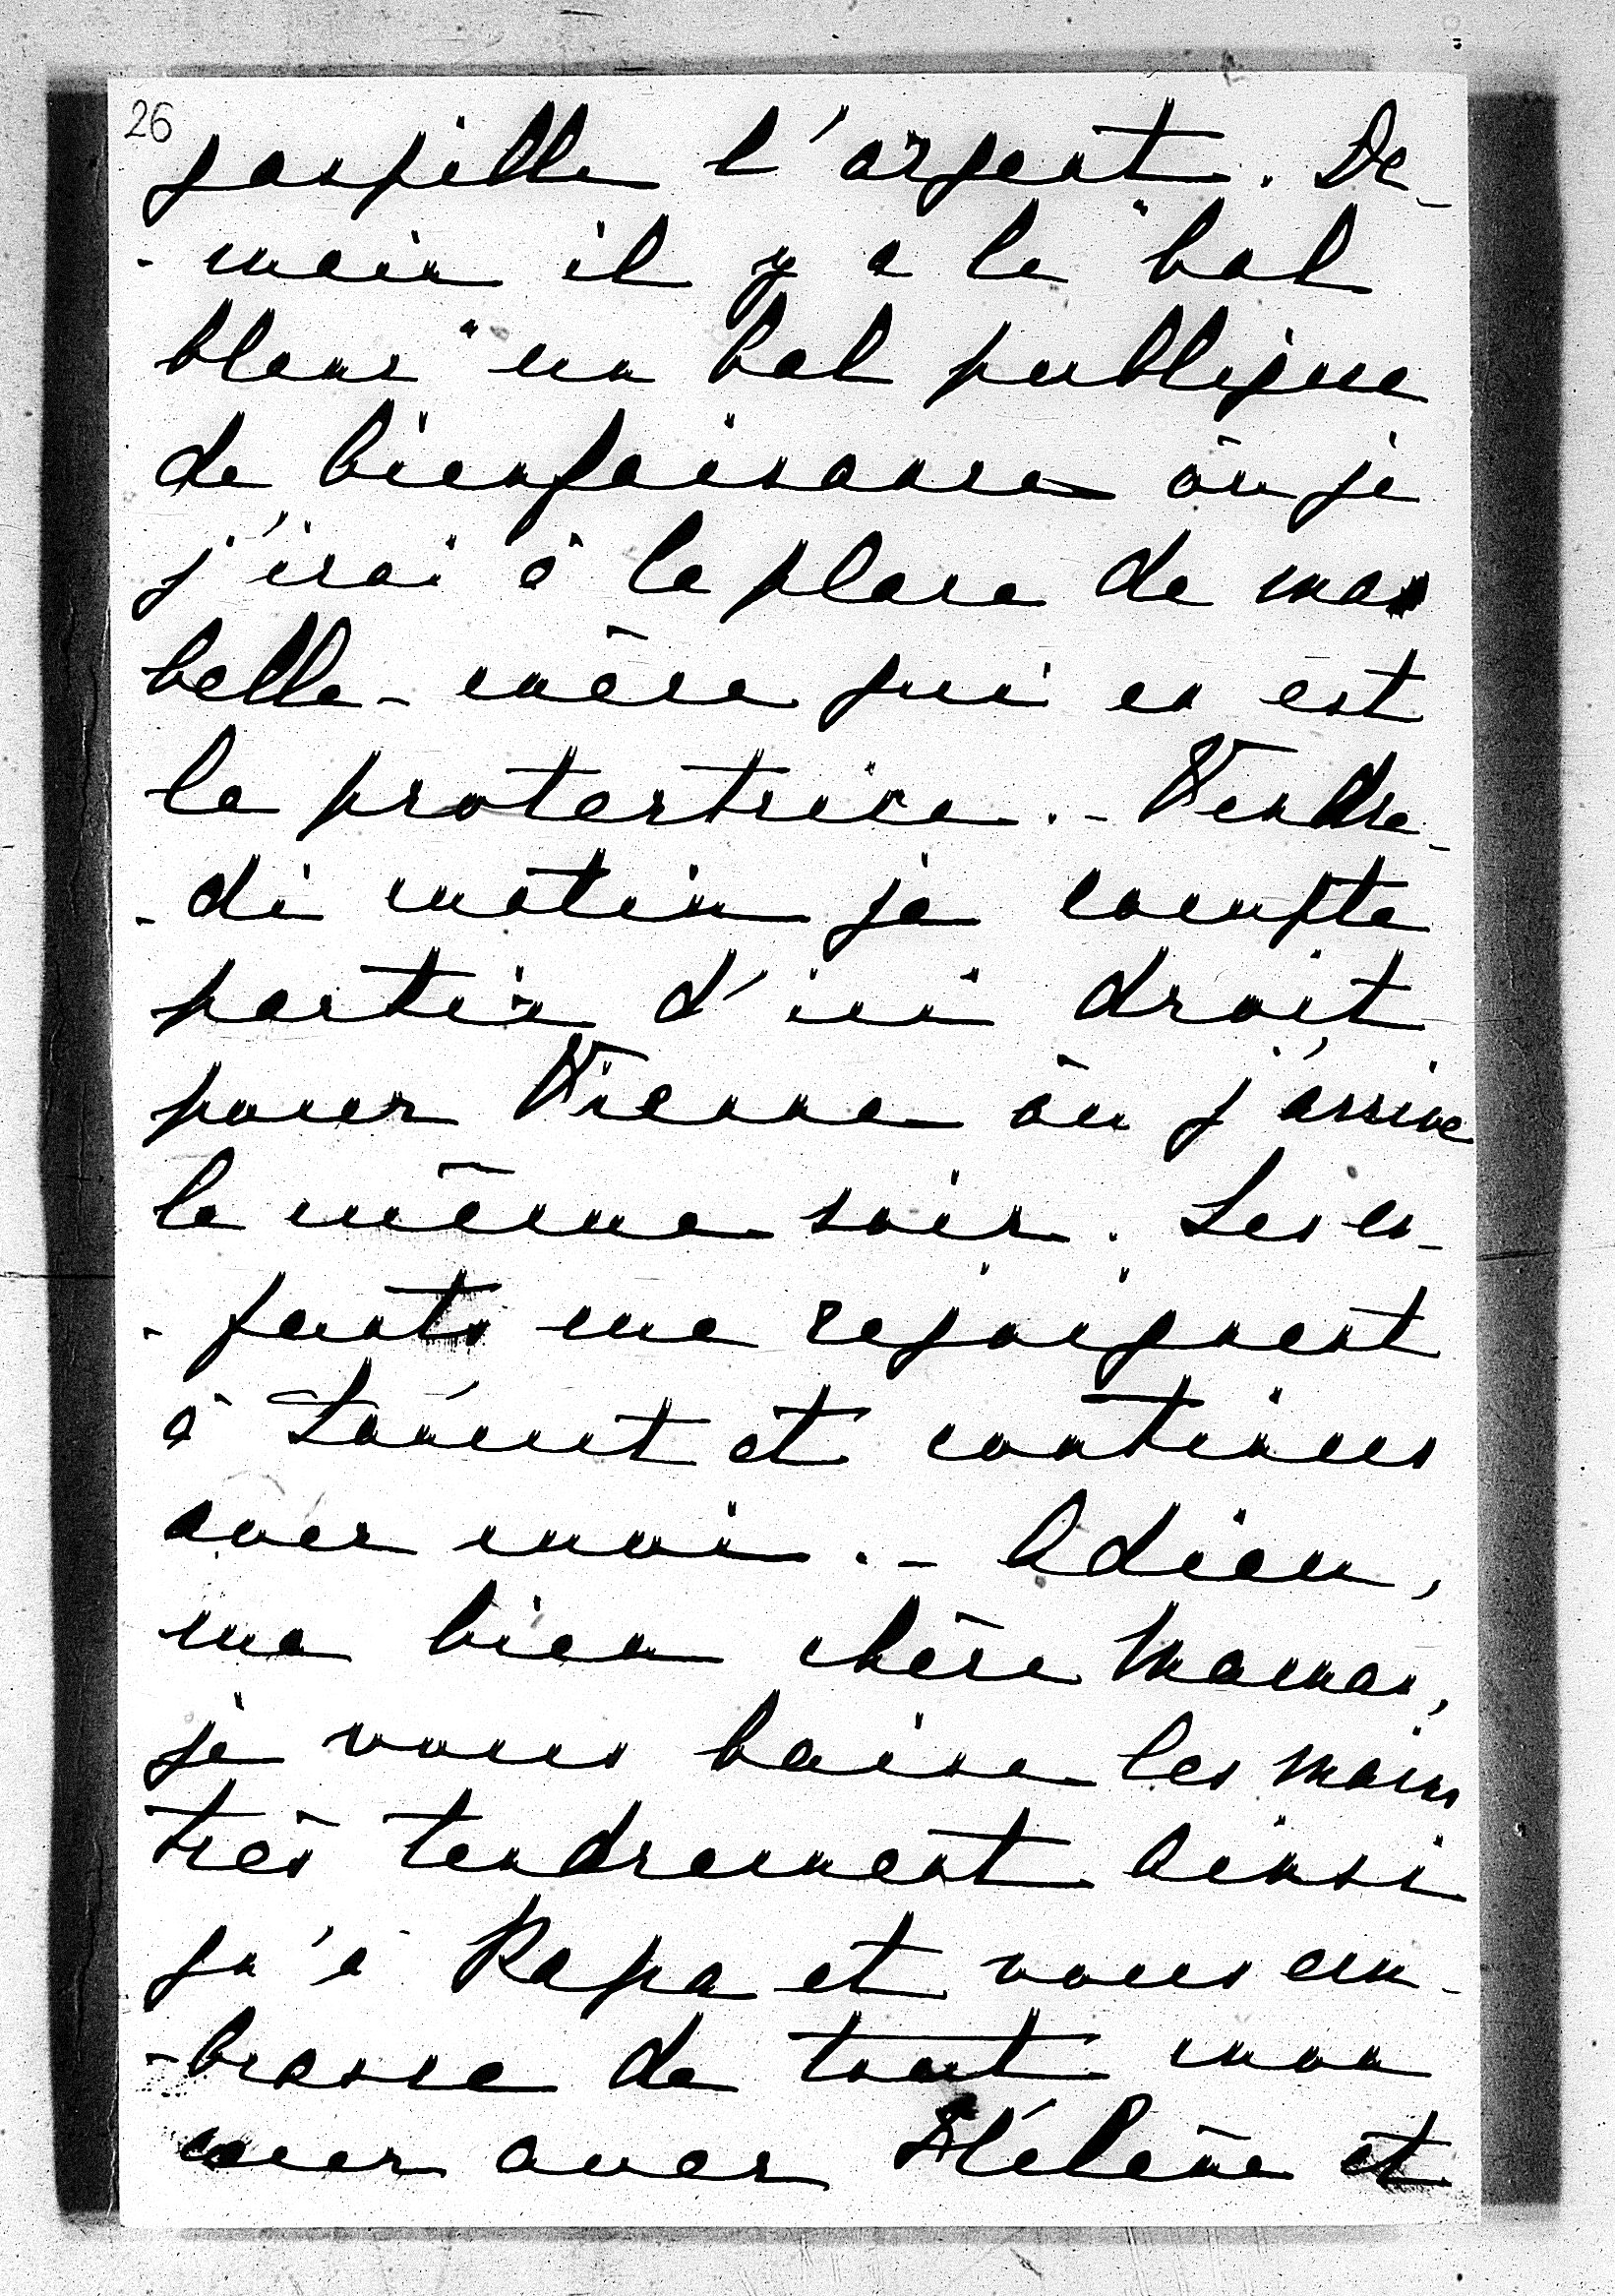 26
gaspille l'argent. De-
-main il y a le "bal
blanc" un bal publique
de bienfaisance où je
j'irai à la place de ma
belle-mère qui en est
la protectrice.- Vendre-
-di matin je compte
partir d'ici droit
pour Vienne où j'arrive
le même soir. Les en-
-fants me rejoignent
à et continues
avec moi.- Adieu,
ma bien chère Maman,
je vous baise les mains
très tendrement ainsi
qu'à Papa et vous em-
-brasse de tout mon
cœur avec Hélène et